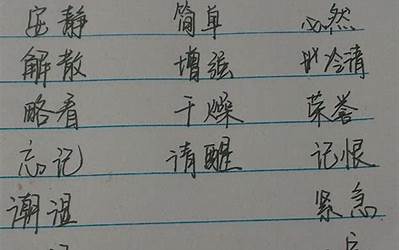 安静 简单 必然
解散 增强 冷清
略看 干燥 荣誉
忘记 清醒 记恨
潮湿 紧急